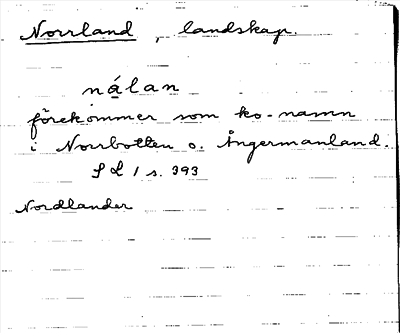 Norrland, landskap.
nålan
förekommer som ko-namn
i Norrbotten o. Ångermanland.
S L 1 s. 393
Nordlander